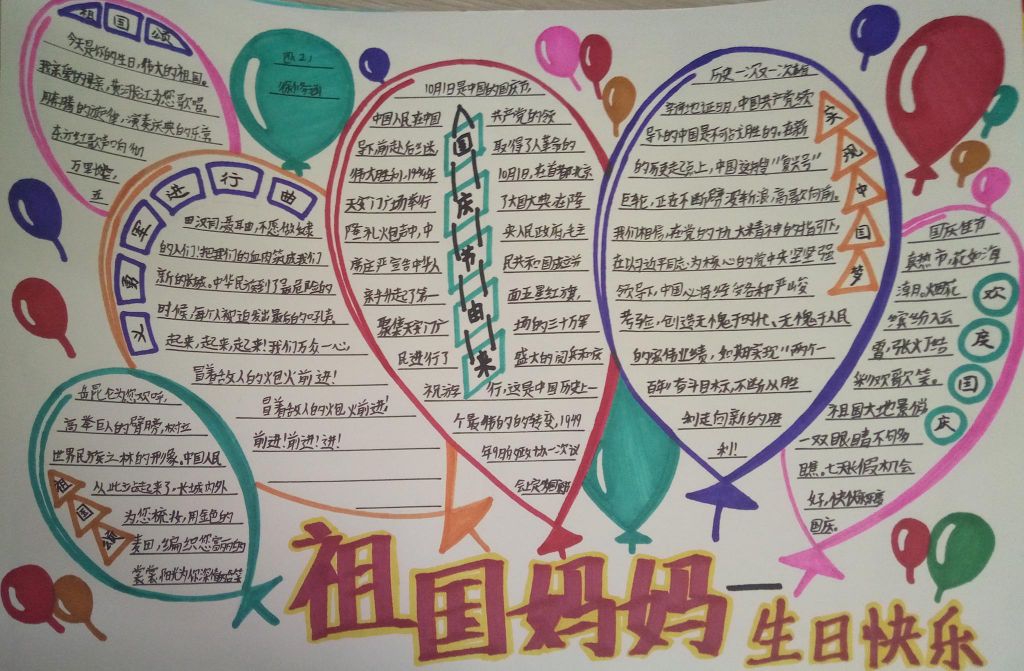 祖国颂
今天是你的生日,伟大的祖国。
我亲爱的母亲,黄河长江为您歌唱。
奔腾的旋律,演奏庆典的乐章
东方红歌声响彻
万里长空,
五
义勇军进行曲
田汉词聂耳曲,不愿做奴隶
的人们!把我们的血肉筑成我们
新的长城。中华民族到了最危险的
时候,每个人被迫发出最后的吼声。
起来,起来,起来!我们万众一心,
冒着敌人的炮火前进!
冒着敌人的炮火前进!
前进!前进!进!
祖国颂
岳昆仑为您欢呼,
高举巨人的臂膀,
世界民族之林的形象。中国人民
从此站起来了,长城内外
为您梳妆,用金色的
麦田,编织您富丽的
裳,阳光为你深情
国庆节由来
10月1日是中国的国庆节,
中国人民在中国 共产党的领
导下,前赴后继 取得了人革命的
伟大胜利,1949年 10月1日,在首都北京
天安门广场举行 了大国大典,在隆
隆礼炮声中,中 央人民政府毛主
席庄严宣告中华人 民共和国成立并
亲手升起了第一 面五星红旗,
聚集天安门广 场的三十万军
民进行了 盛大的阅兵和庆
祝游 行,这是中国历史上一
个最伟的转变,1949
年9月的政协一次议
家现中国梦
历史一次又一次雄
辩地证明,中国共产党领
导下的中国是不可战胜的。在新
的历史起点上,中国这艘“复兴号”
巨轮,正在不断劈波斩浪,高歌向前。
我们相信,在党的十九大精神的指引下,
在以习近平同志为核心的党中央坚强
领导下,中国必将经受各种严峻
考验,创造无愧于时代、无愧于人民
的宏伟业绩,如期实现“两个一
百年”奋斗目标,不断从胜
利走向新的胜
利!
欢度国庆
国庆佳节
真热市,花如海
洋月。烟花
缤纷入云
霄,张灯结
彩欢歌笑。
祖国大地景俏
一双眼睛不够
瞧。七天长假机会
好,快快乐乐
国庆。
祖国妈妈—生日快乐